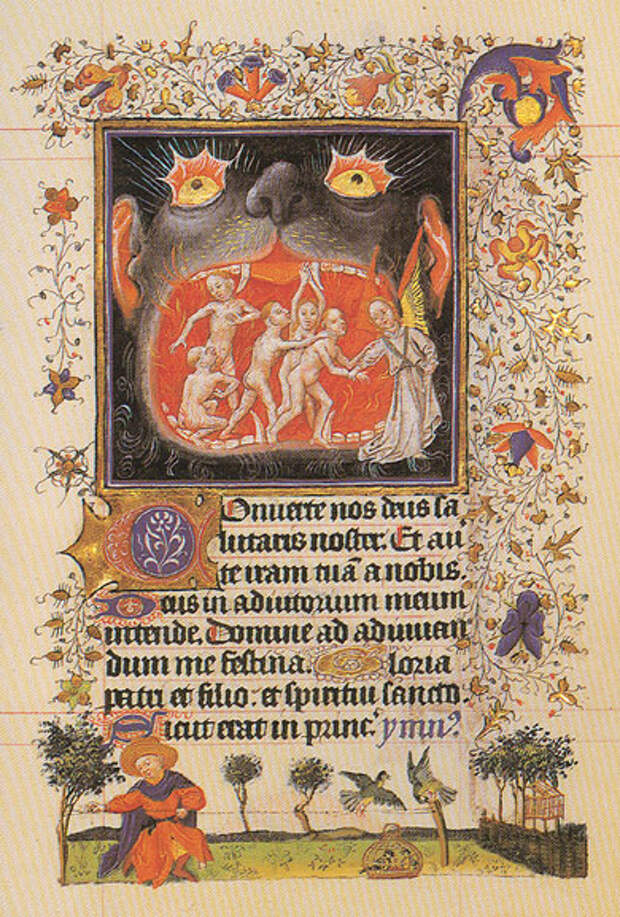 Conuerte nos deus sa
lutaris noster. Et au
te iram tuā a nobis.
Deus in adiutorium meum
intende. Domine ad adiuuan
dum me festina. Gloria
patri et filio: et spiritui sancto.
Sicut erat in princ' ymnꝰ